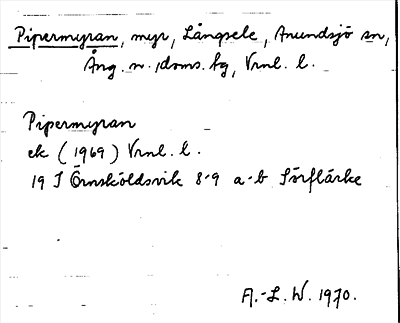 Pipermyran, myr, Långsele, Anundsjö sn,
Ång. n. doms. hg, Vrnl. l.
Pipermyran
ek (1969) Vrnl. l.
19 I Örnsköldsvik 8-9 a-b Sörflärke
A.-L. W. 1970.